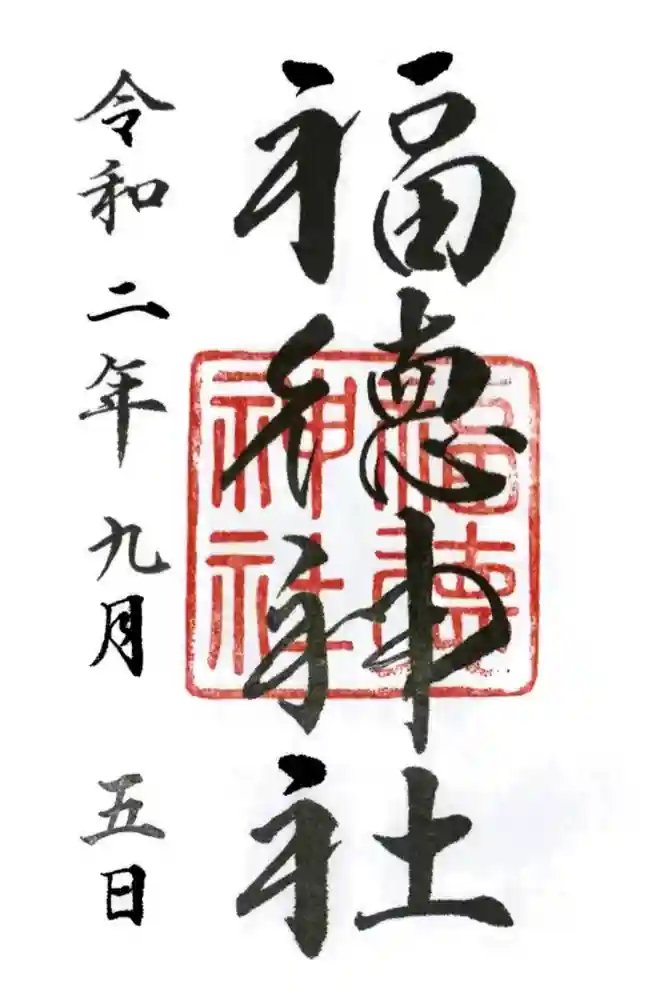 福徳神社
福徳神社
令和二年九月五日